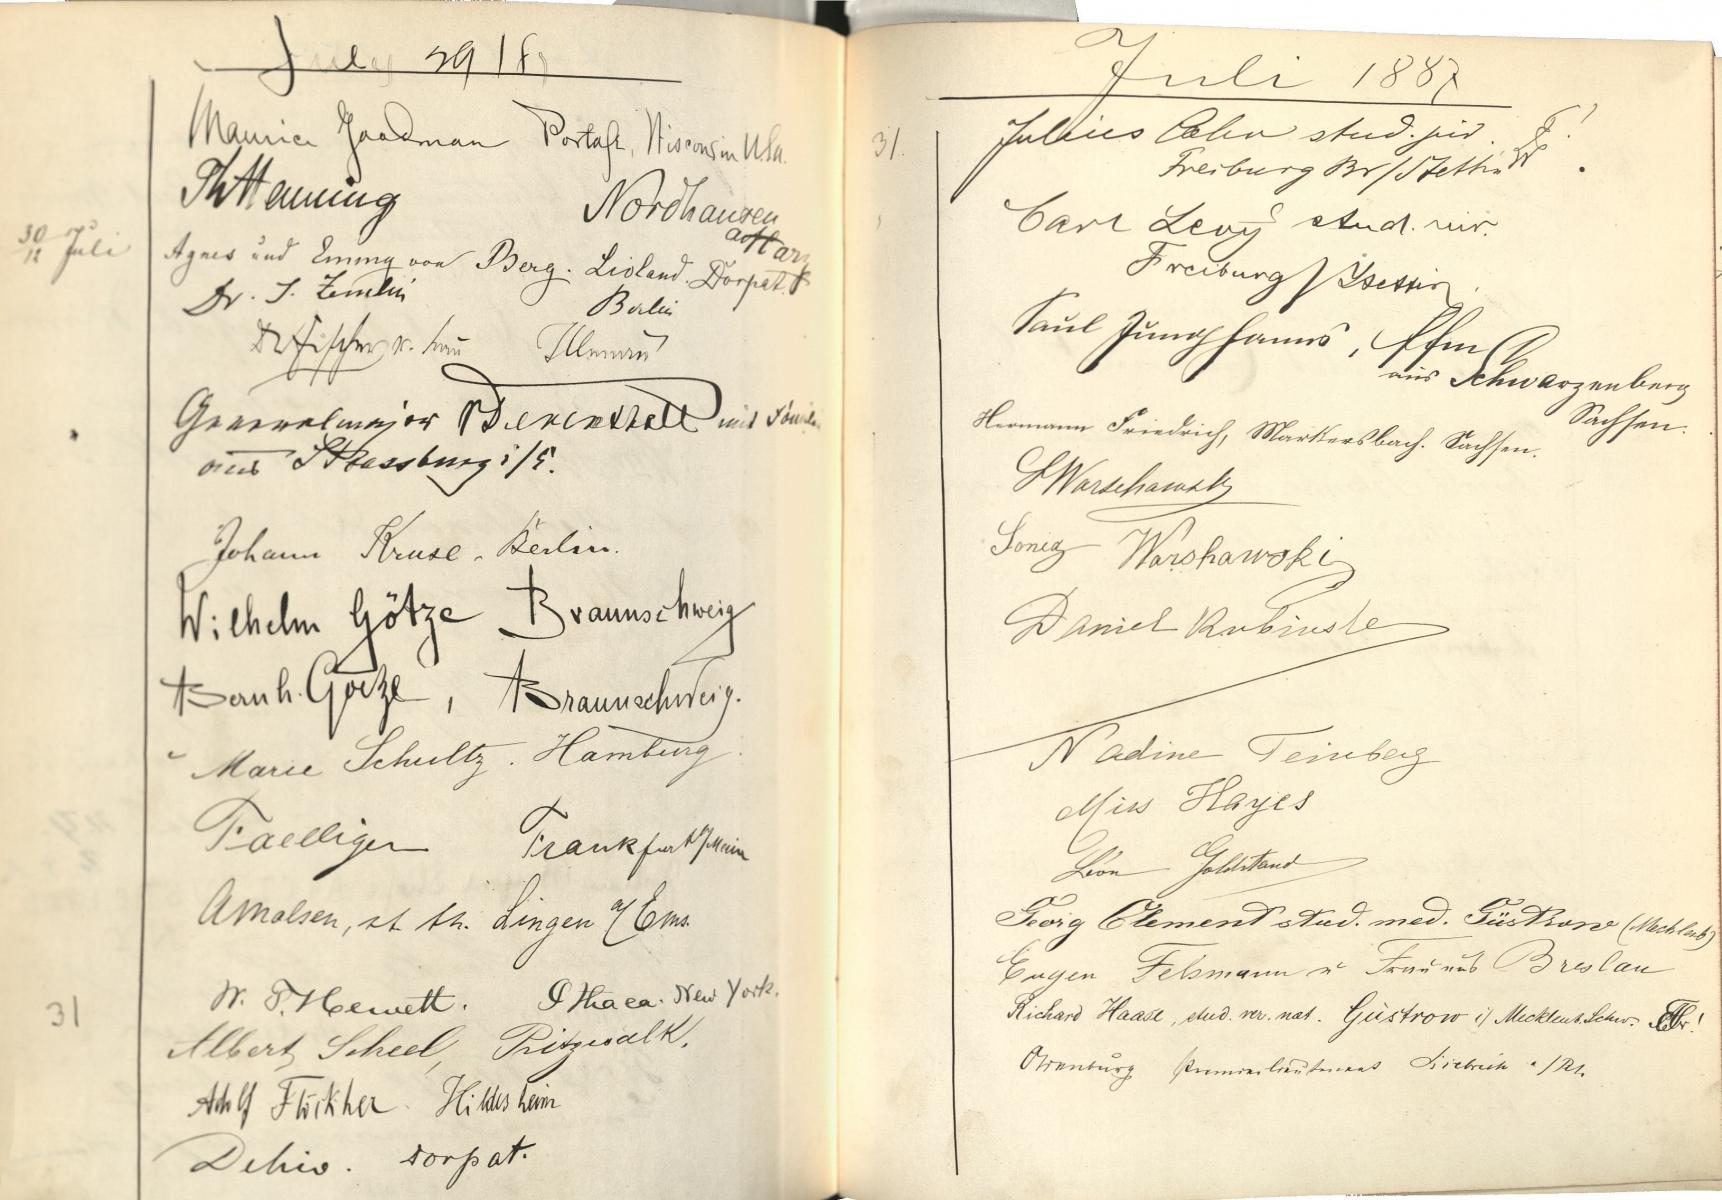 July 29 18
Maurice Goodman Portage, Wisconsin USa.
Th Henning Nordhausen
a/Harz
30/12 Juli
Agnes und Emmy von Berg. Livland. Dorpat.
Dr. S. Zemlin Berlin
Dr Fischer Ilmenau
Generalmajor mit Familie
aus Strassburg i/E.
Johann Kruse. Berlin.
Wilhelm Götze Braunschweig
Bernh. Götze, Braunschweig.
Marie Schultz. Hamburg.
Faelligen Frankfurt a/Main
st. th. Lingen a/Ems.
31
W. T. Hewett. Ithaca. New York.
Albert Scheel, Pritzwalk.
Adolf Flöckher. Hildesheim
Dehio. Dorpat.
Juli 1887
31.
Julius Cohn stud. jur.
Freiburg Br/Stettin
Carl Levy stud. jur.
Freiburg/Stettin.
Paul Junghanns,
aus Schwarzenberg
Sachsen.
Hermann Friedrich, Markersbach. Sachsen.
S Warschawsky
Sonia Warshawski
Daniel Rubinste
Nadine Feinberg
Miss Hayes
Léon Goldstand
Georg Clement stud. med. Güstrow (Mecklenb)
Eugen Felsmann u Frau aus Breslau
Richard Haase, stud. rer. nat. Güstrow i/ Mecklenb. Schw.
Premierlieutenant